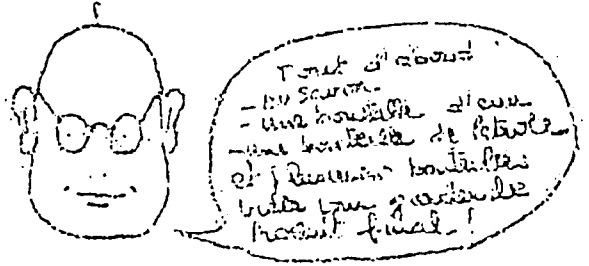 Tout d'abord
- du savon.
- une bouteille d'eau
- une bouteille de pétrole
et plusieurs bouteilles
vides pour garder le
produit final !